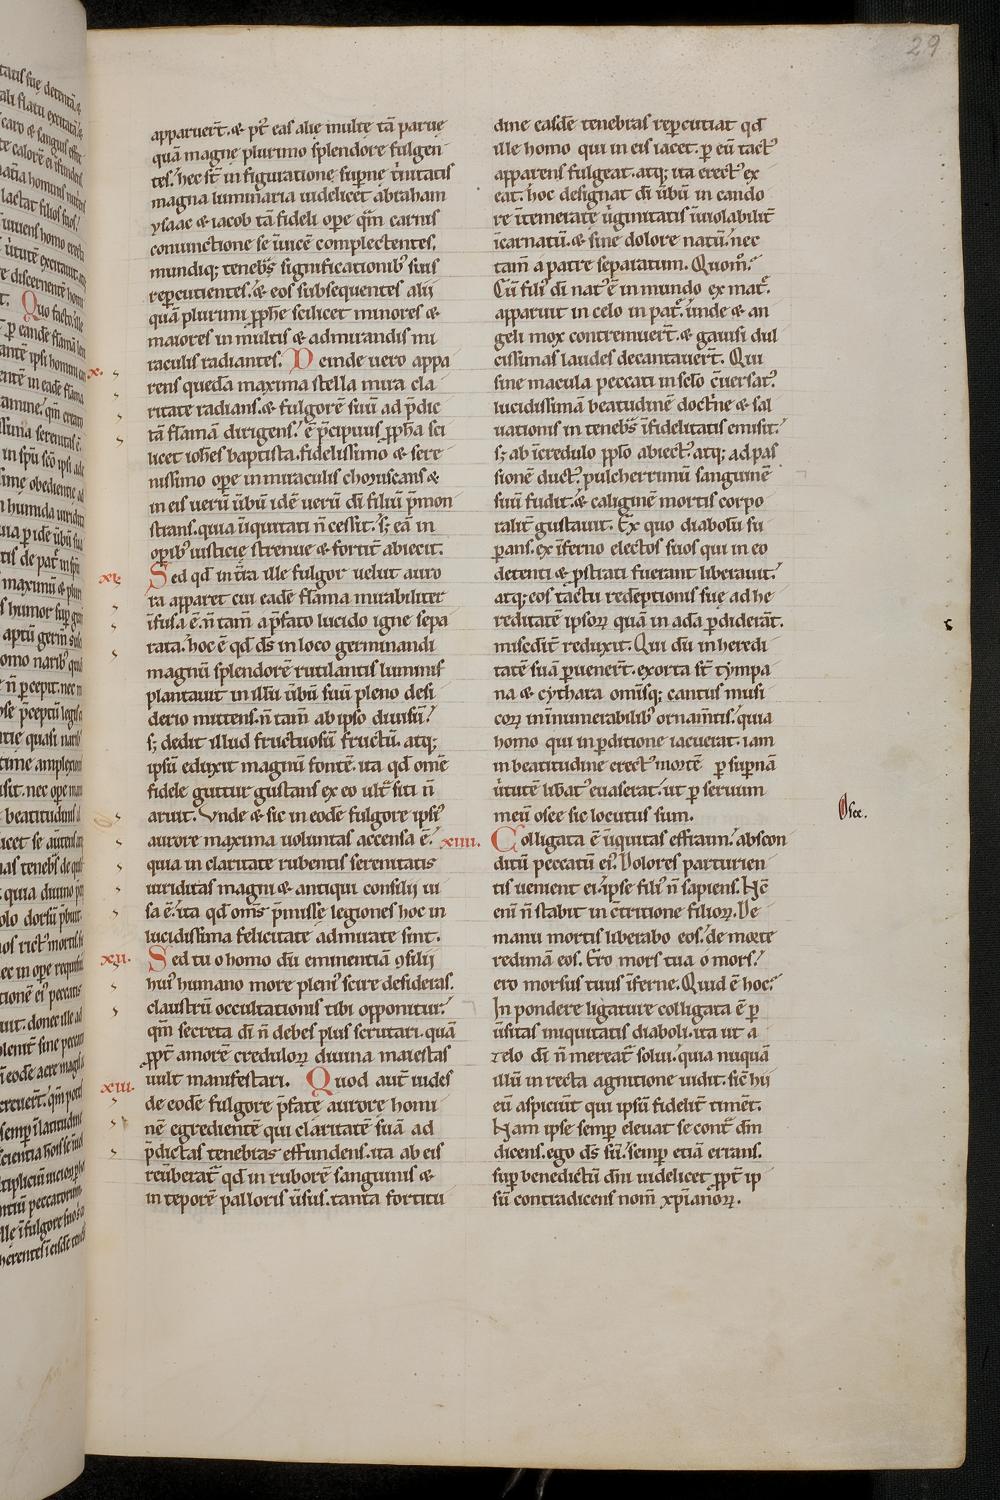 29
apparuert̄. & p̄t eas alie multe tā parue
quā magne plurimo splendore fulgen
tes. hec st̄ in figuratione supne t̓nitatis
magna luminaria uidelicet abraham
ysaac & iacob tā fideli ope qm̄ carnis
coniunctione se īuicē complectentes.
mundiq; tenebs̄ significationib' suis
repercutientes. & eos subsequentes alii
quā plurimi pphē scilicet minores &
maiores in multis & admirandis mi
raculis radiantes. Deinde uero appa
x.
rens quedā maxima stella mira cla
ritate radians. & fulgorē suū ad p̄dic
tā flāmā dirigens. ē p̄cipuus ppha sci
licet ioh̄es baptista. fidelissimo & sere
nissimo ope in miraculis choruscans &
in eis uerū ūbū idē uerū dī filiū p̄mon
strans. quia īiquitati n̄ cessit. s; eā in
opib' iusticie strenue & fortit̄ abiecit.
xi.
Sed qd in tr̄a ille fulgor uelut auro
ra apparet cui eadē flāma mirabiliter
īfusa ē. n̄ tam̄ a p̄fato lucido igne sepa
rata. hoc ē qd ds̄ in loco germinandi
magnū splendorē rutilantis luminis
plantauit in illū ūbū suū pleno desi
derio mittens. n̄ tam̄ ab ipso diuisū.
s; dedit illud fructuosū fructū. atq;
ipsū eduxit magnū fontē. ita qd omē
fidele guttur gustans ex eo ult̄ siti n̄
aruit. Vnde & sic in eodē fulgore ipsi'
aurore maxima uoluntas accensa ē.
quia in claritate rubentis serenitatis
uiriditas magni & antiqui consilii ui
sa ē. ita qd oms̄ p̄misse legiones hoc in
lucidissima felicitate admirate sint.
xii.
Sed tu o homo dū eminentiā 9silii
hui' humano more pleni' scire desideras.
claustrū occultationis tibi opponitur.
qm̄ secreta dī n̄ debes plus scrutari. quā
ppt̄ amorē credulor̄ diuina maiestas
xiii.
uult manifestari. Quod aut̄ uides
de eodē fulgore p̄fate aurore homi
nē egredientē qui claritatē suā ad
p̄dictas tenebras effundens. ita ab eis
reūberat̄ qd in ruborē sanguinis &
in teporē palloris ūsus. tanta fortitu
dine easdē tenebras repercutiat qd
ille homo qui in eis iacet. p eū tact'
apparens fulgeat. atq; ita erect' ex
eat. hoc designat dī ūbū in cando
re ītemerate ūginitatis īuiolabilit̄
īcarnatū. & sine dolore natū. nec
tam̄ a patre separatum. Quom̄.
Cū fili' dī nat' ē in mundo ex mat̄.
apparuit in celo in pat̄. unde & an
geli mox contremuert̄. & gauisi dul
cissimas laudes decantauert̄. Qui
sine macula peccati in sclo c̄uersat'.
lucidissimā beatudinē doct̓ne & sal
uationis in tenebs̄ īfidelitatis emisit.
s; ab īcredulo pplo abiect'. atq; ad pas
sionē duct'. pulcherrimū sanguinē
suū fudit. & caliginē mortis corpo
ralit̄ gustauit. Ex quo diabolū su
perans. ex īferno electos suos qui in eo
detenti & pstrati fuerant liberauit.
atq; eos tactu redēptionis sue ad he
reditatē ipsor̄ quā in ada pdiderāt.
misedit̄ reduxit. Qui dū in heredi
tatē suā puenert̄. exorta st̄ tympa
na & cythara omisq; cantus musi
cor̄ in īnumerabilib' ornam̄tis. quia
homo qui in pditione iacuerat. iam
in beatitudine erect' mortē p supnā
ūtutē libat' euaserat. ut p seruum
meū osee sic locutus sum.
Osee.
xiiii.
Colligata ē īiquitas effraim. abscon
ditū peccatū ei'. Dolores parturien
tis uenient ei. ipse fili' n̄ sapiens. Nc̄
enī n̄ stabit in c̄tritione filior̄. De
manu mortis liberabo eos. de morte
redimā eos. Ero mors tua o mors.
ero morsus tuus īferne. Quid ē hoc?
In pondere ligature colligata ē p
ūsitas iniquitatis diaboli. ita ut a
zelo dī n̄ mereat̄ solui. quia nūquā
illū in recta agnitione uidit. sic̄ hii
eū aspiciūt qui ipsū fidelit̄ timēt.
Nam ipse semp eleuat se cont̄ dm̄
dicens. ego ds̄ sū. semp etiā errans.
sup benedictū dn̄i uidelicet ppt̄ ip
sū contradicens nom̄ xp̄ianor̄.